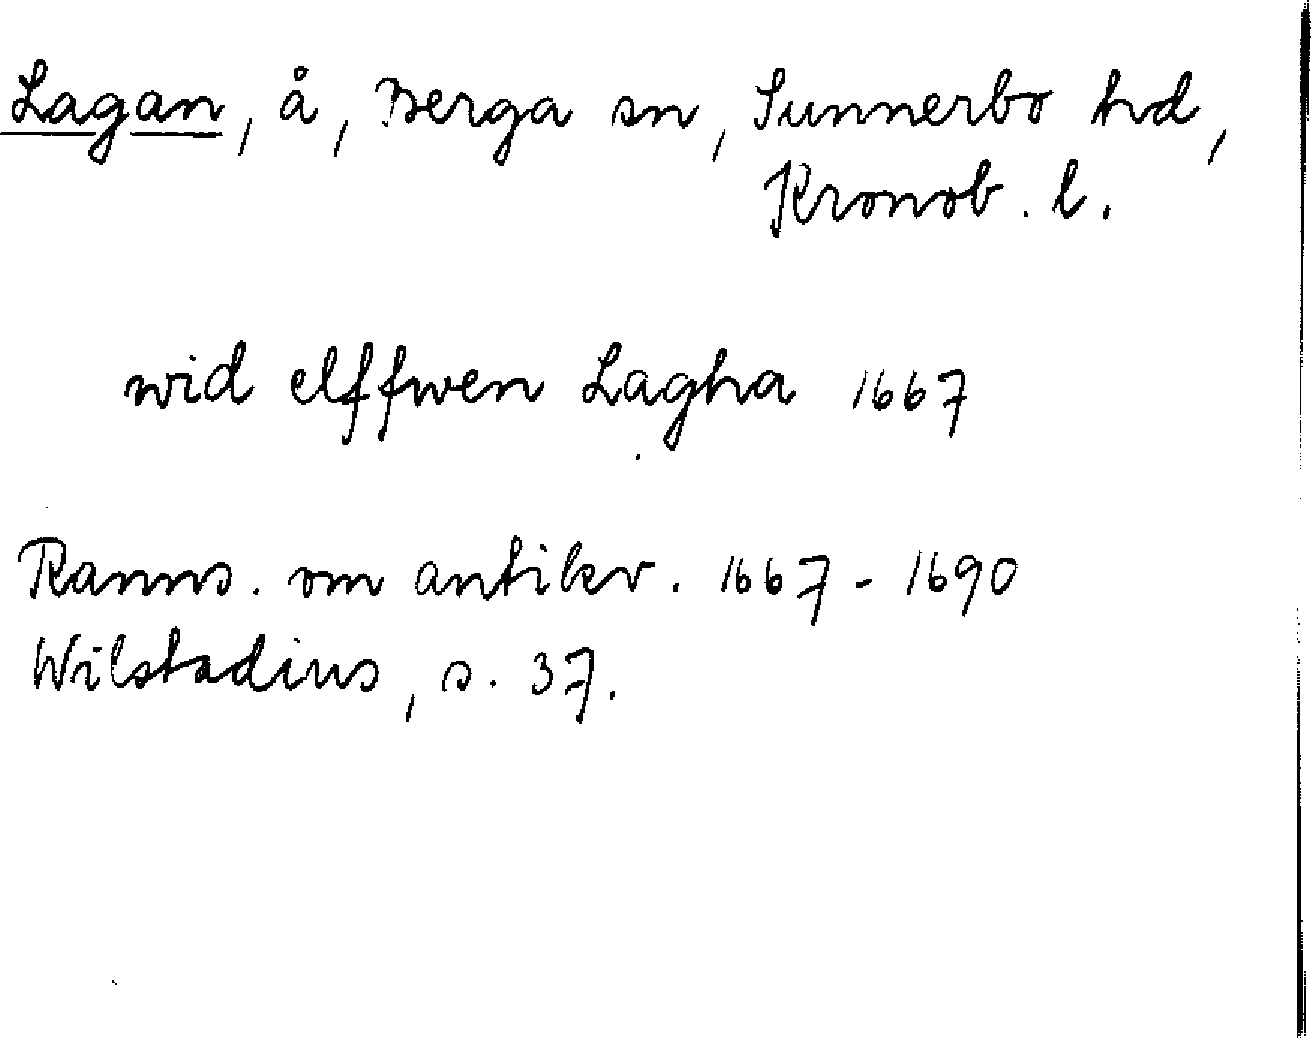 Lagan, å, Berga sn, Sunnerbo hd,
Kronob. l.
wid elffwen Lagha 1667
Ranns. om antikv. 1667-1690
Wilstadius, s. 37.